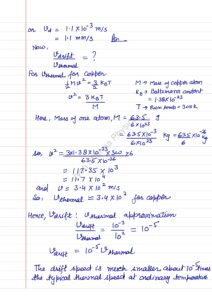 or Vd = 1.1 × 10⁻³ m/s
= 1.1 mm/s Ans
Now,
Vdrift / Vthermal = ?
For Vthermal for copper
1/2 Mv² = 3/2 KBT
v² = 3KBT / M
M → Mass of copper atom
KB → Boltzmann constant
= 1.38×10⁻²³
T → Room temp = 300K
Here, Mass of one atom, M = 63.5 / 6×10²³ g
= 63.5×10⁻³ / 6×10²³ Kg = 63.5×10⁻²⁶ / 6 kg
So, v² = 3×1.38×10⁻²³×300 ×6 / 63.5×10⁻²⁶
= 117.35 × 10³
= 11.7 × 10⁴
and v = 3.4×10² m/s
So, Vthermal = 3.4×10² for copper
Hence, Vdrift : Vthermal approximation
Vdrift / Vthermal = 10⁻³ / 10² = 10⁻⁵
Vdrift = 10⁻⁵ Vthermal
The drift speed is much smaller about 10⁻⁵ times
the typical thermal speed at ordinary temperature